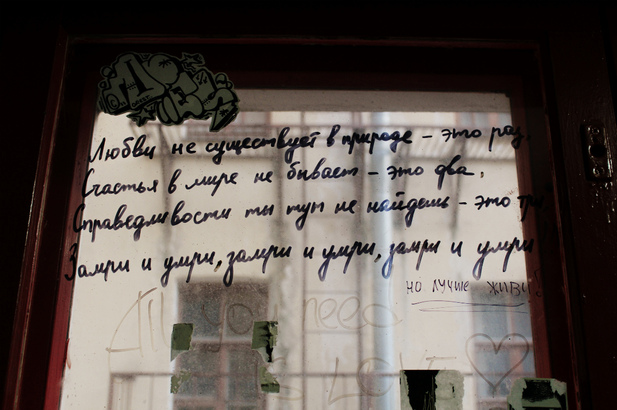 Любви не существует в природе – это раз,
Счастья в мире не бывает – это два,
Справедливости ты тут не найдешь – это три
Замри и умри, замри и умри, замри и умри
но лучше живи
All you need
is LOVE